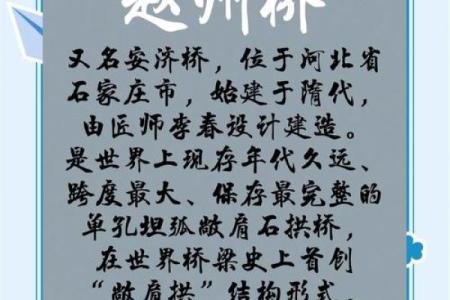 赵州桥
又名安济桥，位于河北省
石家庄市，始建于隋代，
由匠师李春设计建造。
是世界上现存年代久远、
跨度最大、保存最完整的
单孔坦弧敞肩石拱桥，
在世界桥梁史上首创
“敞肩拱”结构形式，